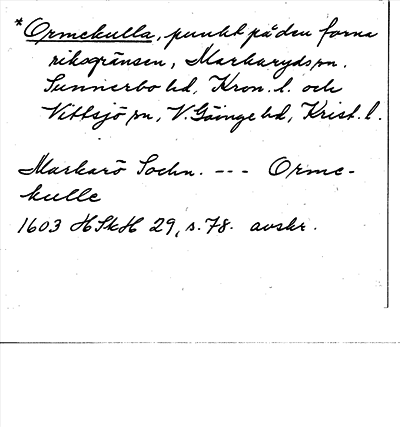 *Ormekulla, punkt på den forna
riksgränsen, Markaryds sn.
Sunnerbo hd, Kron. l. och
Vittsjö sn, V. Göinge hd, Krist. l.
Markarö Sochn. --- Orme-
kulle
1603 HSkH 29, s. 78. avskr.